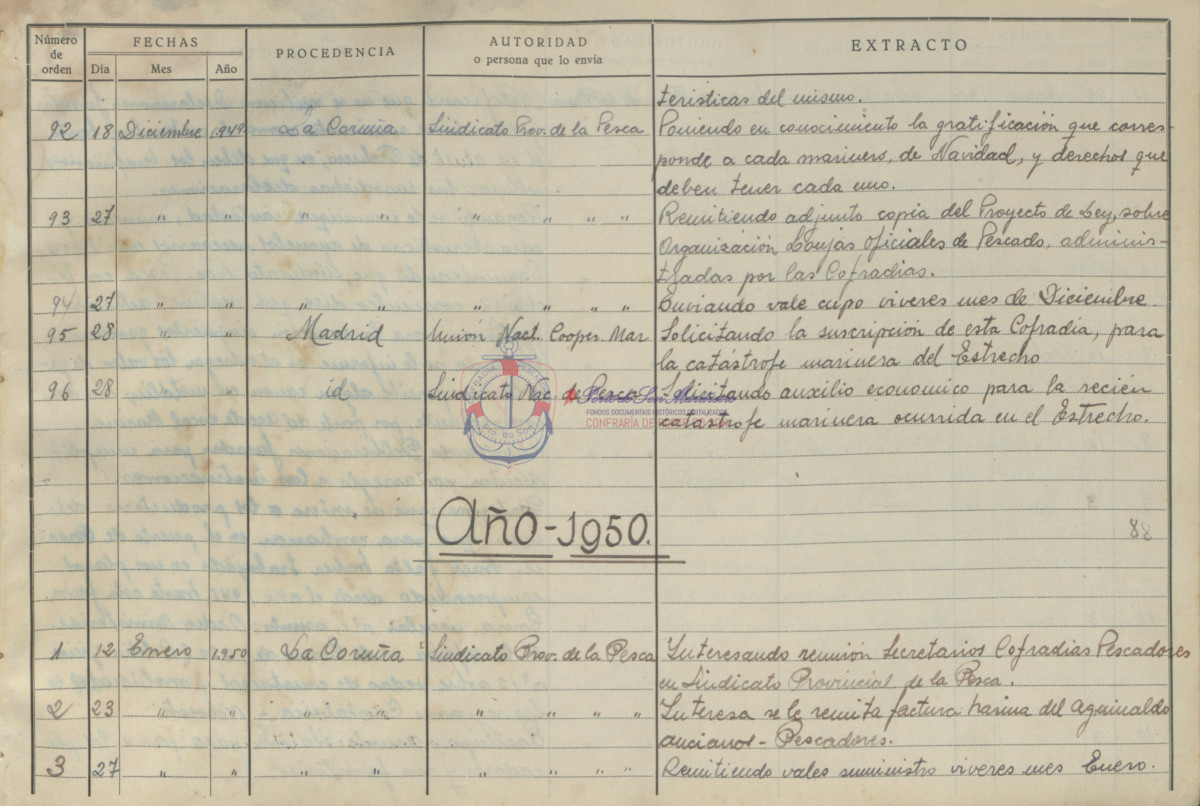 Número de orden FECHAS PROCEDENCIA AUTORIDAD o persona que lo envía EXTRACTO
Día Mes Año
terísticas del mismo.
92 18 Diciembre 1.949. La Coruña Sindicato Prov. de la Pesca Poniendo en conocimiento la gratificación que corres-
ponde a cada marinero, de Navidad, y derechos que
deben tener cada uno.
93 27 " " " " " " " " Remitiendo adjunto copia del Proyecto de Ley, sobre
Organización Lonjas Oficiales de Pescado, adminis-
tradas por las Cofradias.
94 27 " " " " " " " " Enviando vale cupo viveres mes de Diciembre
95 28 " " Madrid Unión Nacl. Cooper. Mar Solicitando la suscripción de esta Cofradía, para
la catástrofe marinera del Estrecho
96 28 " " id Sindicato Nac. de Pesca Solicitando auxilio economico para la recién
catastrofe marinera ocurrida en el Estrecho.
FONDOS DOCUMENTAIS HISTÓRICOS DIXITALIZADOS
CONFRARÍA DE
Año-1950.
88
1 12 Enero 1.950 La Coruña Sindicato Prov. de la Pesca Interesando reunión Secretarios Cofradias Pescadores
en Sindicato Provincial de la Pesca.
2 23 " " " " " " " " Interesa se le remita factura harina del aguinaldo
ancianos - Pescadores.
3 27 " " " " " " " " Remitiendo vales suministro viveres mes Enero.